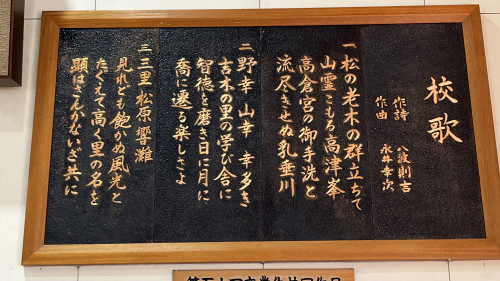 校歌
作詩 八波則吉
作曲 永井幸次
一 松の老木の群立ちて
山霊こもる高津峯
高倉宮の御手洗と
流尽きせぬ乳垂川
二 野幸 山幸 幸多き
吉木の里の学び舎に
智徳を磨き日に月に
喬に遷る楽しさよ
三 三里松原響灘
見れども飽かぬ風光と
たぐえて高く里の名を
顕はさんかないざ共に